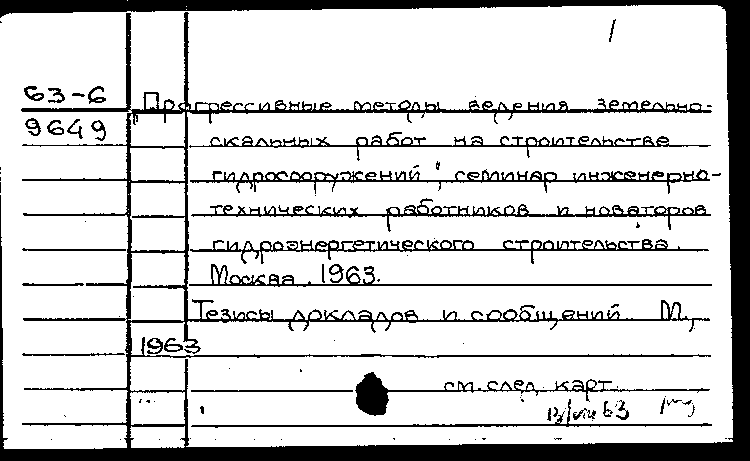 1
63-6
9649
"Прогрессивные методы ведения земельно-
скальных работ на строительстве
гидросооружений", семинар инженерно-
технических работников и новаторов
гидроэнергетического строительства.
Москва. 1963.
Тезисы докладов и сообщений М.,
1963
см. след. карт.
13/VIII 63